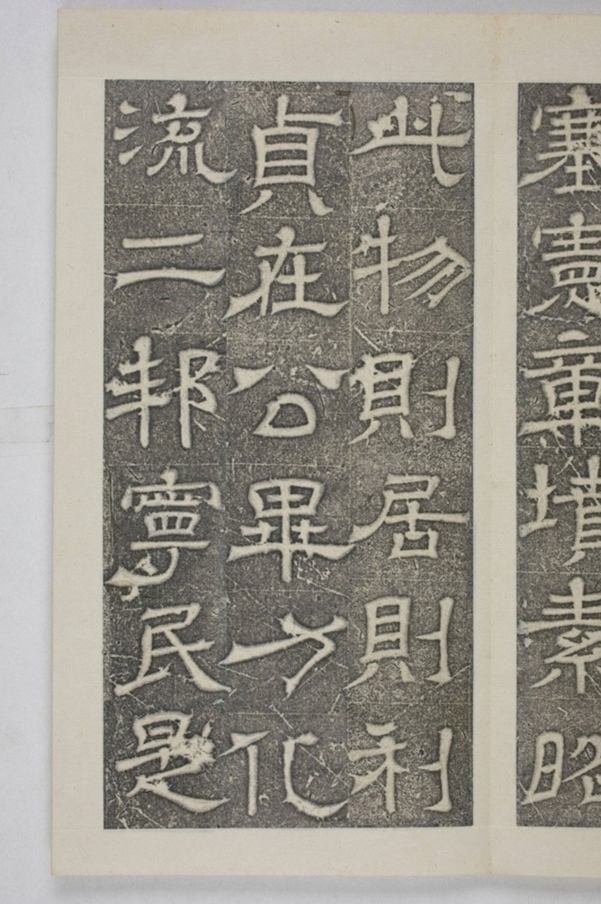 塞憲章墳素昭
此物則居則利
貞在公畢力化
流二邦寧民是